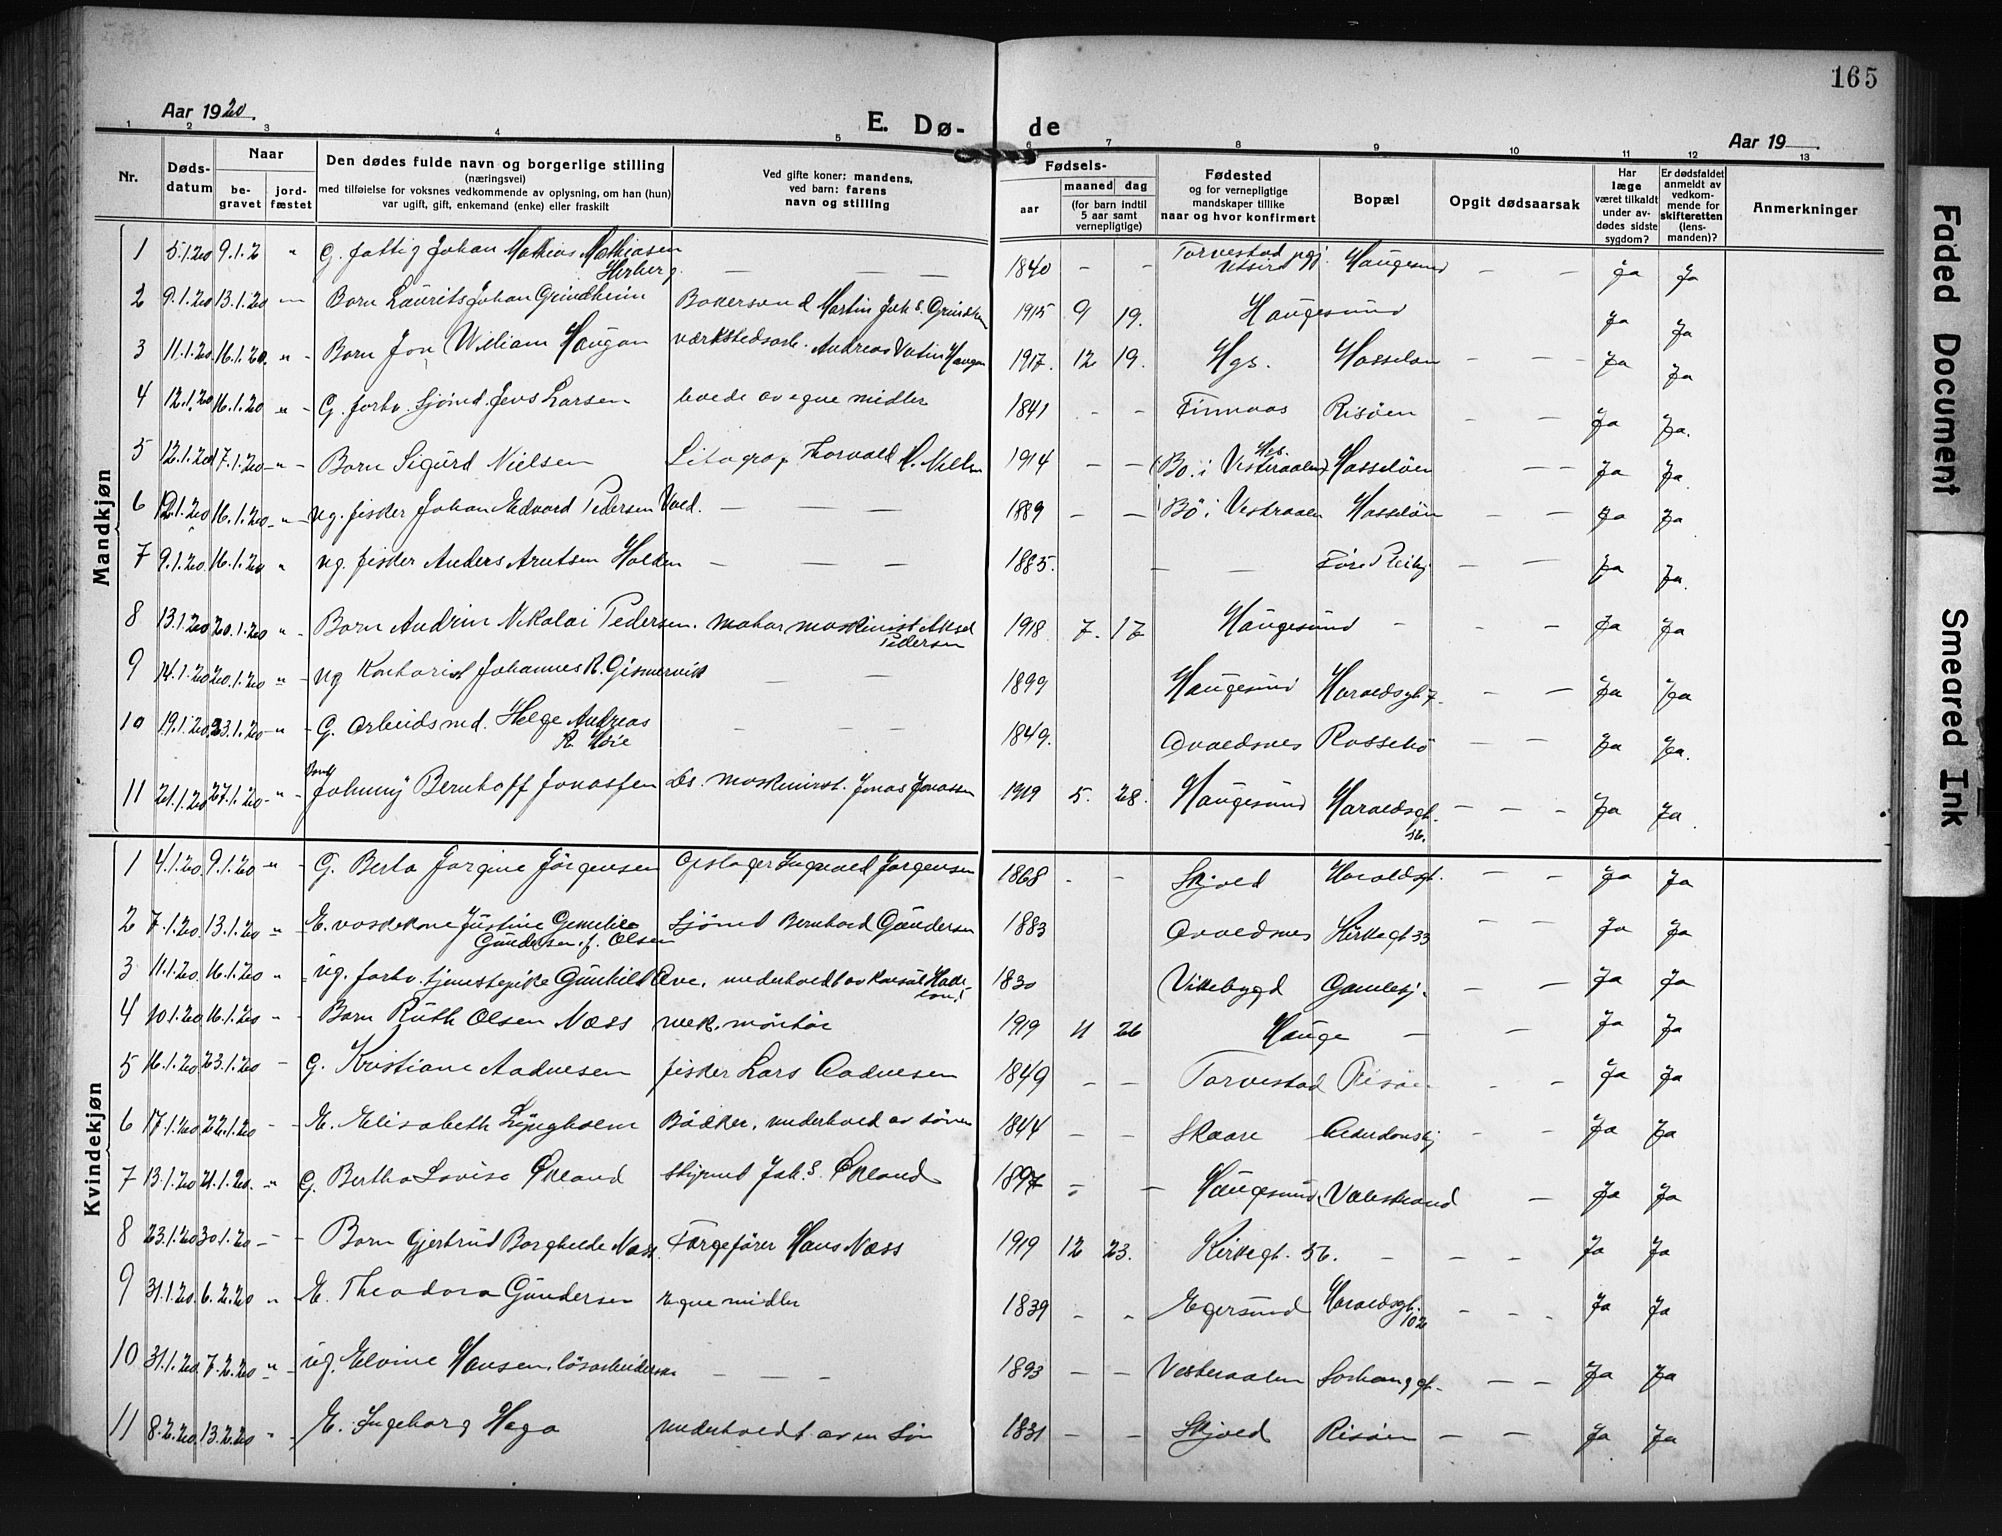 165
Aar 1920.
E. Dø-
de
Aar 19
1 2 3 4 5 6 7 8 9 10 11 12 13
Nr.
Døds-
datum
Naar
be-
gravet
jord-
fæstet
Den dødes fulde navn og borgerlige stilling
(næringsvei)
med tilføielse for voksnes vedkommende av oplysning, om han (hun)
var ugift, gift, enkemand (enke) eller fraskilt
Ved gifte koner: mandens,
ved barn: farens
navn og stilling
Fødsels-
aar
maaned dag
(for barn indtil
5 aar samt
vernepligtige)
Fødested
og for vernepligtige
mandskaper tillike
naar og hvor konfirmert
Bopæl
Opgit dødsaarsak
Har
læge
været tilkaldt
under av-
dødes sidste
sygdom?
Er dødsfaldet
anmeldt av
vedkom-
mende for
skifteretten
(lens-
manden)?
Anmerkninger
Mandkjøn
1 5.1.20 9.1.2 " G. fattig Johan Mathias Mathiasen — — — 1840 - - Torvestad pgj. Haugesund — — Ja Ja
Herberg. Utsira
2 9.1.20 13.1.20 Barn Laurits Johan Grindheim Martin Joh S. Grindheim 1915 9 19. Haugesund Ja Ja
3 11.1.20. 16.1.20. " - Barn Jon William Haugan værkstedsarb. Andreas Haugan 1917. 12 19. Hgs. Hasseløen - — — Ja Ja
4 12.1.20 16.1.20 " - G. forhv. Sjömd. Jens Larsen levede av egne midler 1841 - - Finnaas Risöen — — Ja Ja.
5 12.1.20 17.1.20 - " - Barn Sigurd Nielsen Litograf Thorvald N. Nielsen 1914 — — (Bö. i Vesteraalen) Hasselöen — — Ja Ja
6 12.1.20 16.1.20 - " - ug. fisker Johan Edvard Pedersen Vold. — — — 1889 — — Bö i Vestraalen Hasselöen — — Ja Ja
7 9.1.20. 16.1.20 " ug. fisker Anders Arntsen Holden — — — 1885. — — — — Ja Ja.
8 13.1.20 20.1.20 " - Barn Andrin Nikolai Pedersen. motor maskinist Aksel 1918 7. 17 Haugesund — — — Ja Ja
Pedersen
9 14.1.20 20.1.20 " - ug Kontorist Johannes R. Gismervik — — 1899 Haugesund Haraldsgt 7. — — Ja Ja
10 19.1.20 23.1.20 - " - G. Arbeidsmd. Helge Andreas — — — 1849. Avaldsnes Rossebö — — Ja Ja.
R. Höie
11 21.1.20 27.1.20 - " - Barn Johnny Bernhoff Jonassen Ds. Maskinist. Jonas Jonassen 1919 5. 28. Haugesund Haraldsgt. — — — Ja Ja.
Kvindekjøn
1 4.1.20. 9.1.20 " - G. Berta Jorgine Jörgensen Opslager Ingvald Jörgensen 1868 - - Skjold Haraldsgt. — — Ja Ja
2 7.1.20. 13.1.20 " - E. vaskekone Justine Gundersen, f. Olsen Sjömd Bernhard Gundersen 1883 Avaldsnes Kirkegt 33 — — Ja Ja
3 11.1.20. 16.1.20 " ug. forhv. tjenestepike Gunhild Ove. underholdt av Konsul 1830 Vikebygd — — Ja Ja
4 10.1.20 16.1.20 - - Barn Ruth Olsen Næss mek. montör 1919 11 26 Hauge — — Ja Ja
5 16.1.20 23.1.20 — G. Kristiane Aadnesen fisker Lars Aadnesen 1849 — — Torvestad Risöen - — Ja Ja
6 17.1.20 22.1.20 - - E. Elisabeth Lyngholm Bödker, underhold av sönen 1844 — — Skaare - — Ja Ja
7 13.1.20 21.1.20. " G. Bertha Lovise Ökland Joh S. Ökland 1897 - — Haugesund Valestrand — Ja Ja
8 23.1.20 30.1.20 — - Barn Gjertrud Borghelde Næss Hans Næss 1919 12 23. Kirkegt. 56. — — — Ja Ja
9 31.1.20. 6.2.20 " E. Theodora Gundersen Egne midler 1839 - - Egersund Haraldsgt. 102 - — — Ja Ja
10 31.1.20 7.2.20 " - ug. Elvine Hansen, lösarbeiderske — — — 1893 — — Vesteraalen Sörhauggt. — — Ja Ja
11 8.2.20. 13.2.20 " - E. Ingeborg Haga underholdt av en Sön 1831 — — Skjold Risöen — — — Ja Ja
Faded Document
Smeared Ink